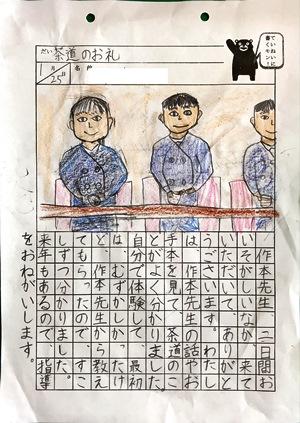 だい 茶道のお礼
1月25日 名前
ていねいに
書くモン
作本先生、二日間お
いそがしいなか、来て
いただいて、ありがと
うございます。わたし
は、作本先生の話やお
手本を見て、茶道のこ
とがよく分かりました。
自分で体験して、最初
は、むずかしかったけ
ど、作本先生から教え
てもらったので、すこ
しずつ分かりました。
来年もあるので、指導
をおねがいします。